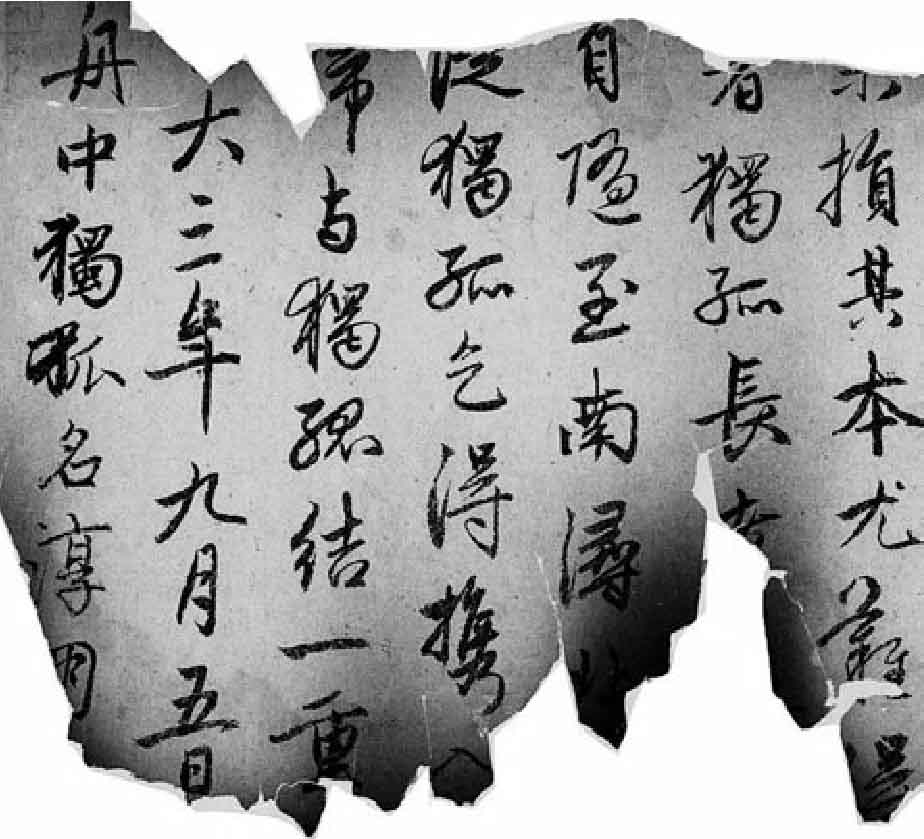 損其本尤難
獨孤長
自隨至南潯北
從獨孤乞得攜入
与獨孤結一重
大三年九月五日
舟中獨孤名淳朋